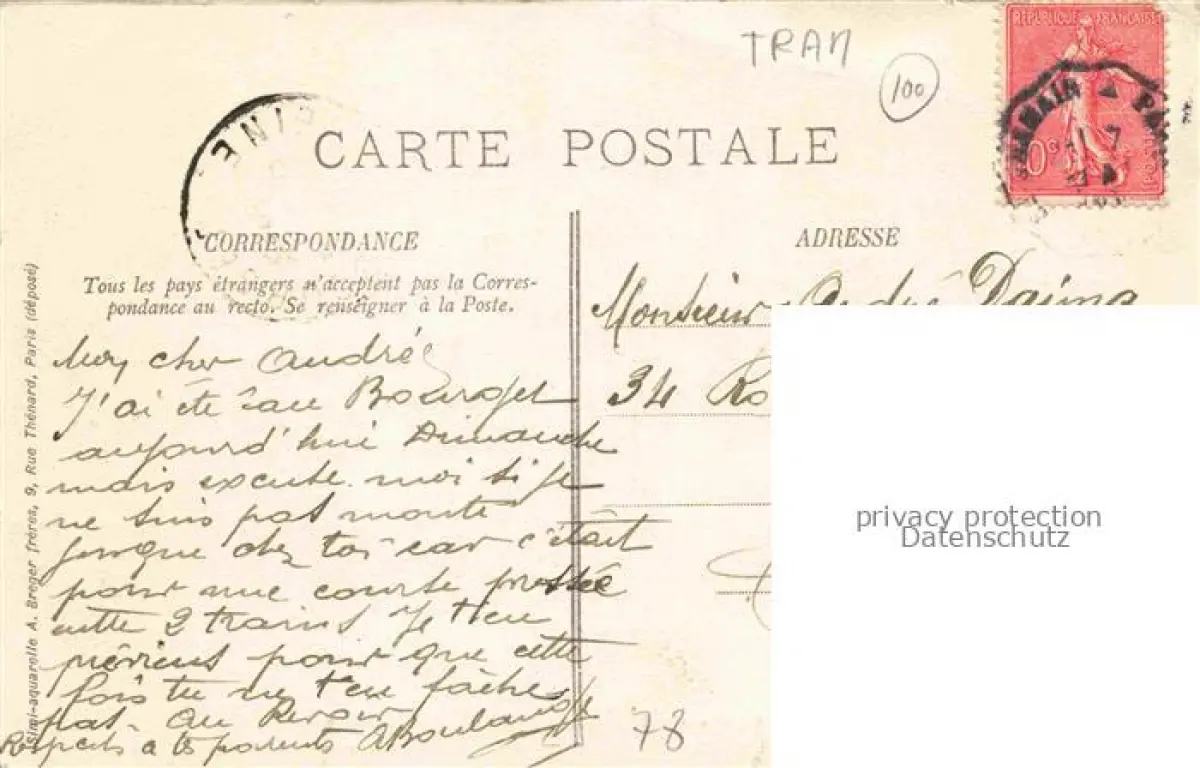 TRAM
100
RÉPUBLIQUE FRANÇAISE
CARTE POSTALE
CORRESPONDANCE
Tous les pays étrangers n'acceptent pas la Corres-
pondance au recto. Se renseigner à la Poste.
Mon cher André
J'ai été au Bourget
aujourd'hui Dimanche
mais excuse moi si je
ne suis pas monté
jusque chez toi car c'était
pour une courte
entre 2 trains Je t'en
préviens pour que cette
fois tu ne t'en fâches
pas. Au Revoir
Respects à tes parents ABoulanger
ADRESSE
Monsieur André
34
78
Simi-aquarelle A. Breger frères, 9, Rue Thénard, Paris (déposé)
privacy protection
Datenschutz